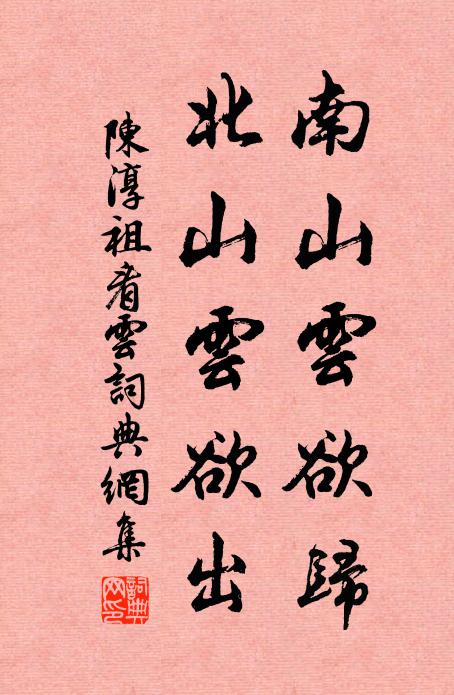 南山雲欲歸
北山雲欲出
陳淳祖看雲詞典網集
詞典網印